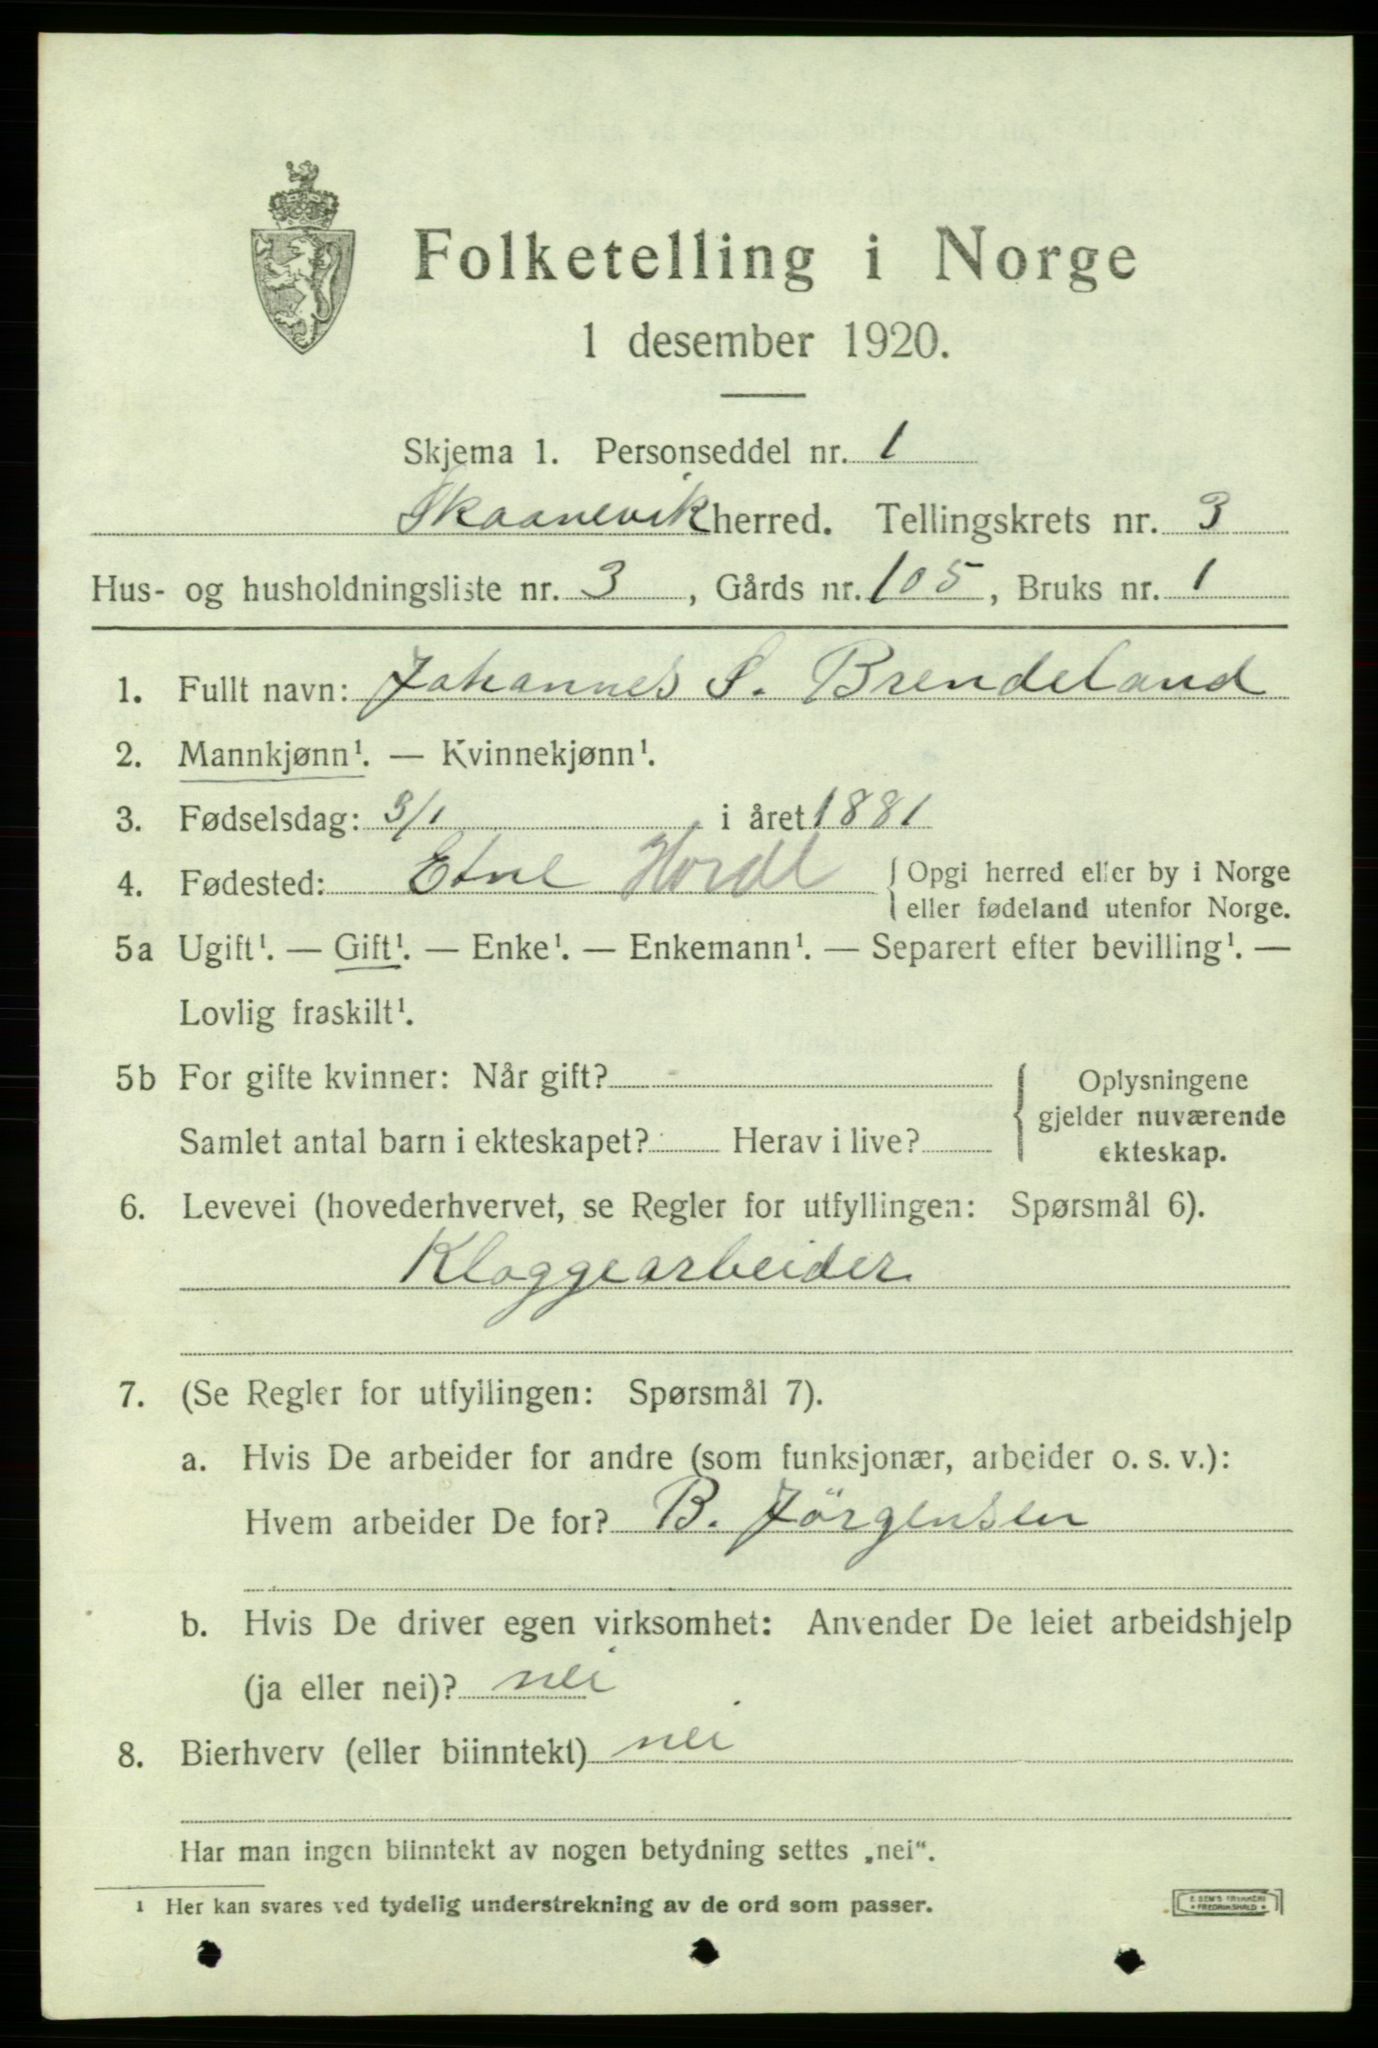 Folketelling i Norge
1 desember 1920.
Skjema 1. Personseddel nr. 1
Skaanevik herred. Tellingskrets nr. 3
Hus- og husholdningsliste nr. 3, Gårds nr. 105, Bruks nr. 1
1. Fullt navn: Johannes S. Brendeland
2. Mannkjønn¹. — Kvinnekjønn¹.
3. Fødselsdag: 3/1 i året 1881
4. Fødested: Etne Hordl { Opgi herred eller by i Norge
eller fødeland utenfor Norge.
5a Ugift¹. — Gift¹. — Enke¹. — Enkemann¹. — Separert efter bevilling¹. —
Lovlig fraskilt¹.
5b For gifte kvinner: Når gift? { Oplysningene
gjelder nuværende
Samlet antal barn i ekteskapet? Herav i live? ekteskap.
6. Levevei (hovederhvervet, se Regler for utfyllingen: Spørsmål 6).
Kloggearbeider
7. (Se Regler for utfyllingen: Spørsmål 7).
a. Hvis De arbeider for andre (som funksjonær, arbeider o. s. v.):
Hvem arbeider De for? B. Jörgensen
b. Hvis De driver egen virksomhet: Anvender De leiet arbeidshjelp
(ja eller nei)? nei
8. Bierhverv (eller biinntekt) nei
Har man ingen biinntekt av nogen betydning settes „nei“.
1 Her kan svares ved tydelig understrekning av de ord som passer.
FREDRIKSHALD